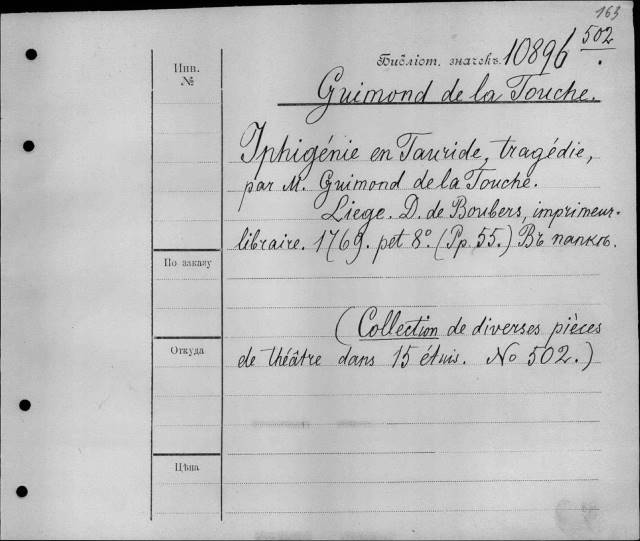 163
Библіот. значекъ 10896 502.
Инв.
№
Guimond de la Touche.
Iphigénie en Tauride, tragédie,
par M. Guimond de la Touche.
Liege. D. de Boubers, imprimeur-
libraire. 1769. pet 8°. (Pp. 55.) Въ папкѣ.
По заказу
(Collection de diverses pièces
de théâtre dans 15 étuis. No 502.)
Откуда
Цѣна